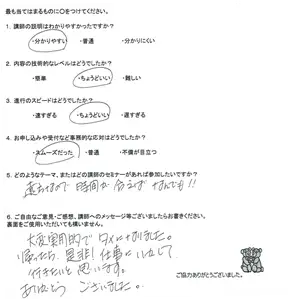 最も当てはまるものに○をつけてください。
1. 講師の説明はわかりやすかったですか？
・分かりやすい ・普通 ・分かりにくい
2. 内容の技術的なレベルはどうでしたか？
・簡単 ・ちょうどいい ・難しい
3. 進行のスピードはどうでしたか？
・速すぎる ・ちょうどいい ・遅すぎる
4. お申し込みや受付など事務的な応対はどうでしたか？
・スムーズだった ・普通 ・不備が目立つ
5. どのようなテーマ、またはどの講師のセミナーがあれば参加したいですか？
遠方なので 時間が 合えば なんでも!!
6. ご自由なご意見・ご感想、講師へのメッセージ等ございましたらお書きください。
裏面をご使用いただいても構いません。
大変実用的で タメになりました。
帰ったら、是非! 仕事に いかして
行きたいと 思います。
ありがとう ございました。
ご協力ありがとうございました。